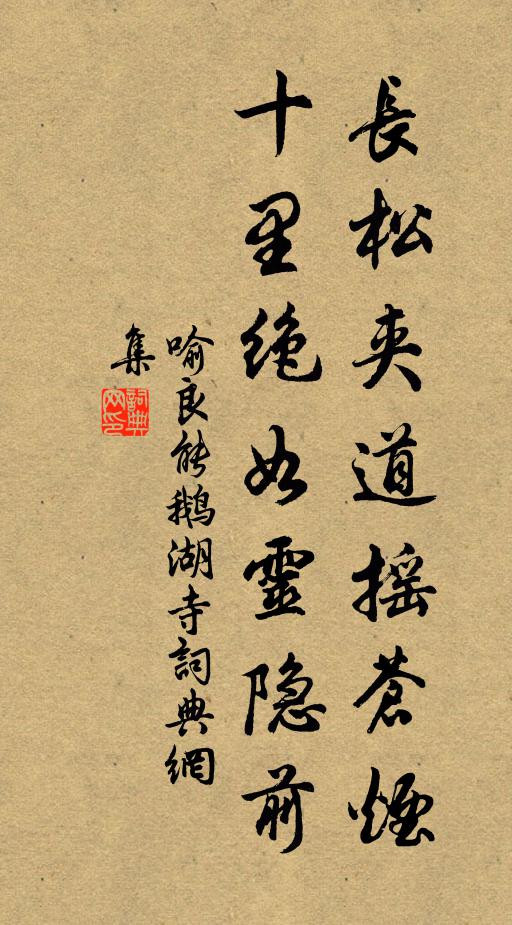 長松夹道摇蒼煙
十里絶如靈隐前
喻良能鹅湖寺詞典網
集
詞典網印